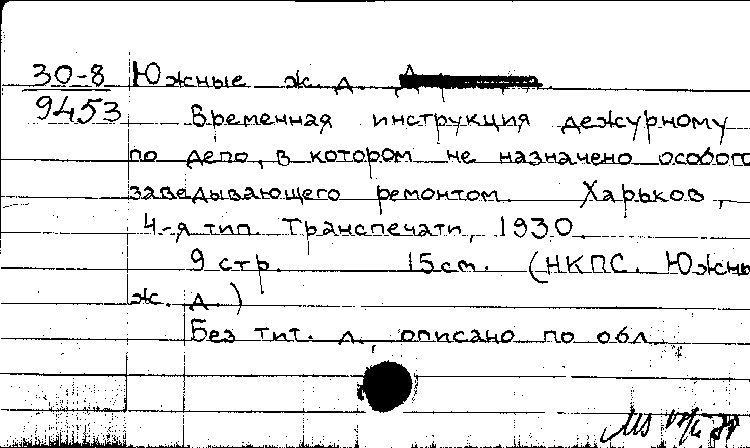 30-8 Южные ж. д.
9453 Временная инструкция дежурному
по депо, в котором не назначено особого
заведывающего ремонтом. Харьков,
4-я тип. Транспечати, 1930.
9 стр. 15см. (НКПС. Южны
ж. д.)
Без тит. л., описано по обл.